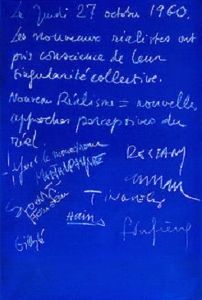 Le Jeudi 27 octobre 1960.
Les nouveaux réalistes ont
pris conscience de leur
singularité collective.
Nouveau Réalisme = nouvelles
approches perceptives du
réel
Yves le monochrome
Martial Raysse
RESTANY
Arman
Spoerri
Tinguely
Hains